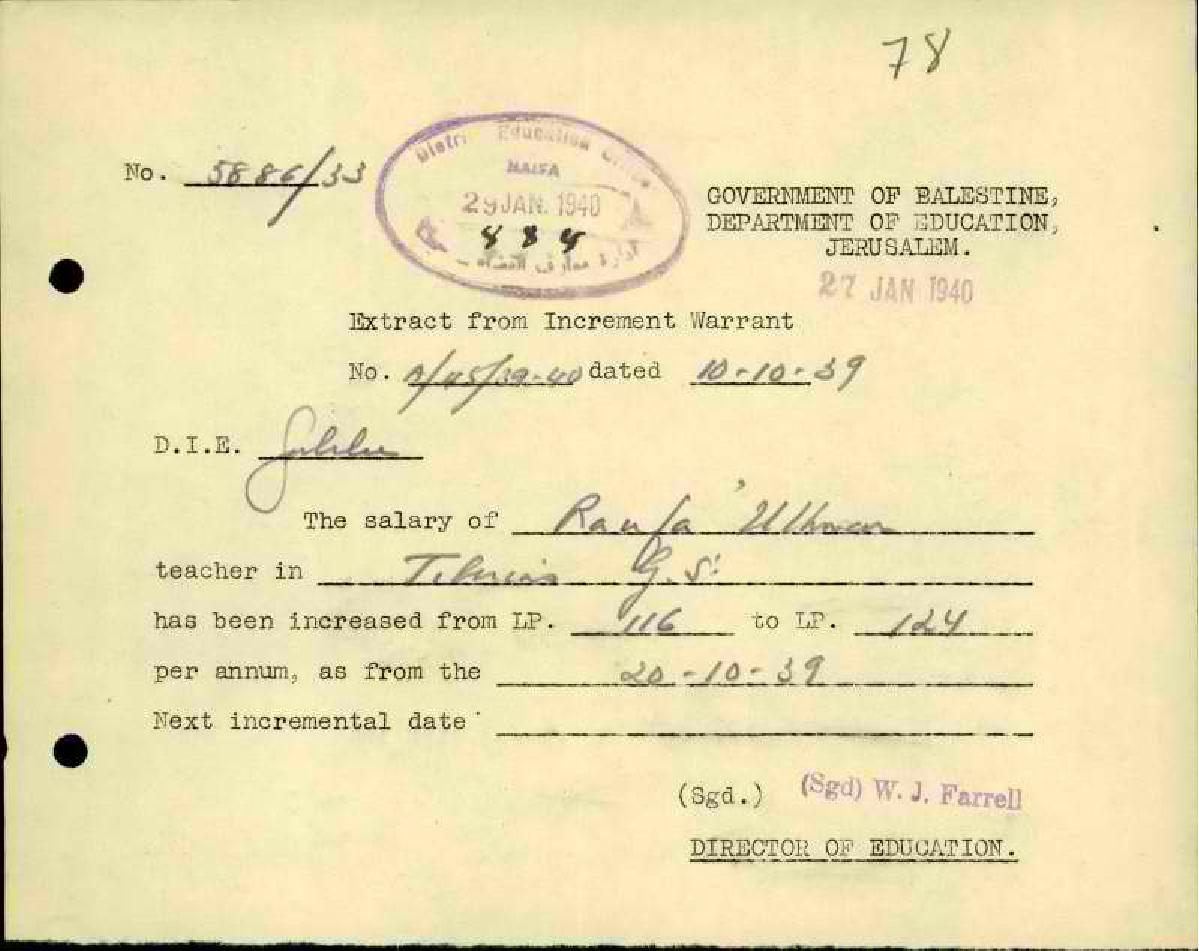 78
No. 5886/33
Distri Education Office
HAIFA
29 JAN. 1940
884
ادارة معارف القضاء
GOVERNMENT OF PALESTINE,
DEPARTMENT OF EDUCATION,
JERUSALEM.
27 JAN 1940
Extract from Increment Warrant
No. A/45/39-40 dated 10-10-39
D.I.E. Galilee
The salary of Raufa
teacher in Tiberias G.S.
has been increased from LP. 116 to LP. 124
per annum, as from the 20-10-39
Next incremental date
(Sgd.) (Sgd) W. J. Farrell
DIRECTOR OF EDUCATION.